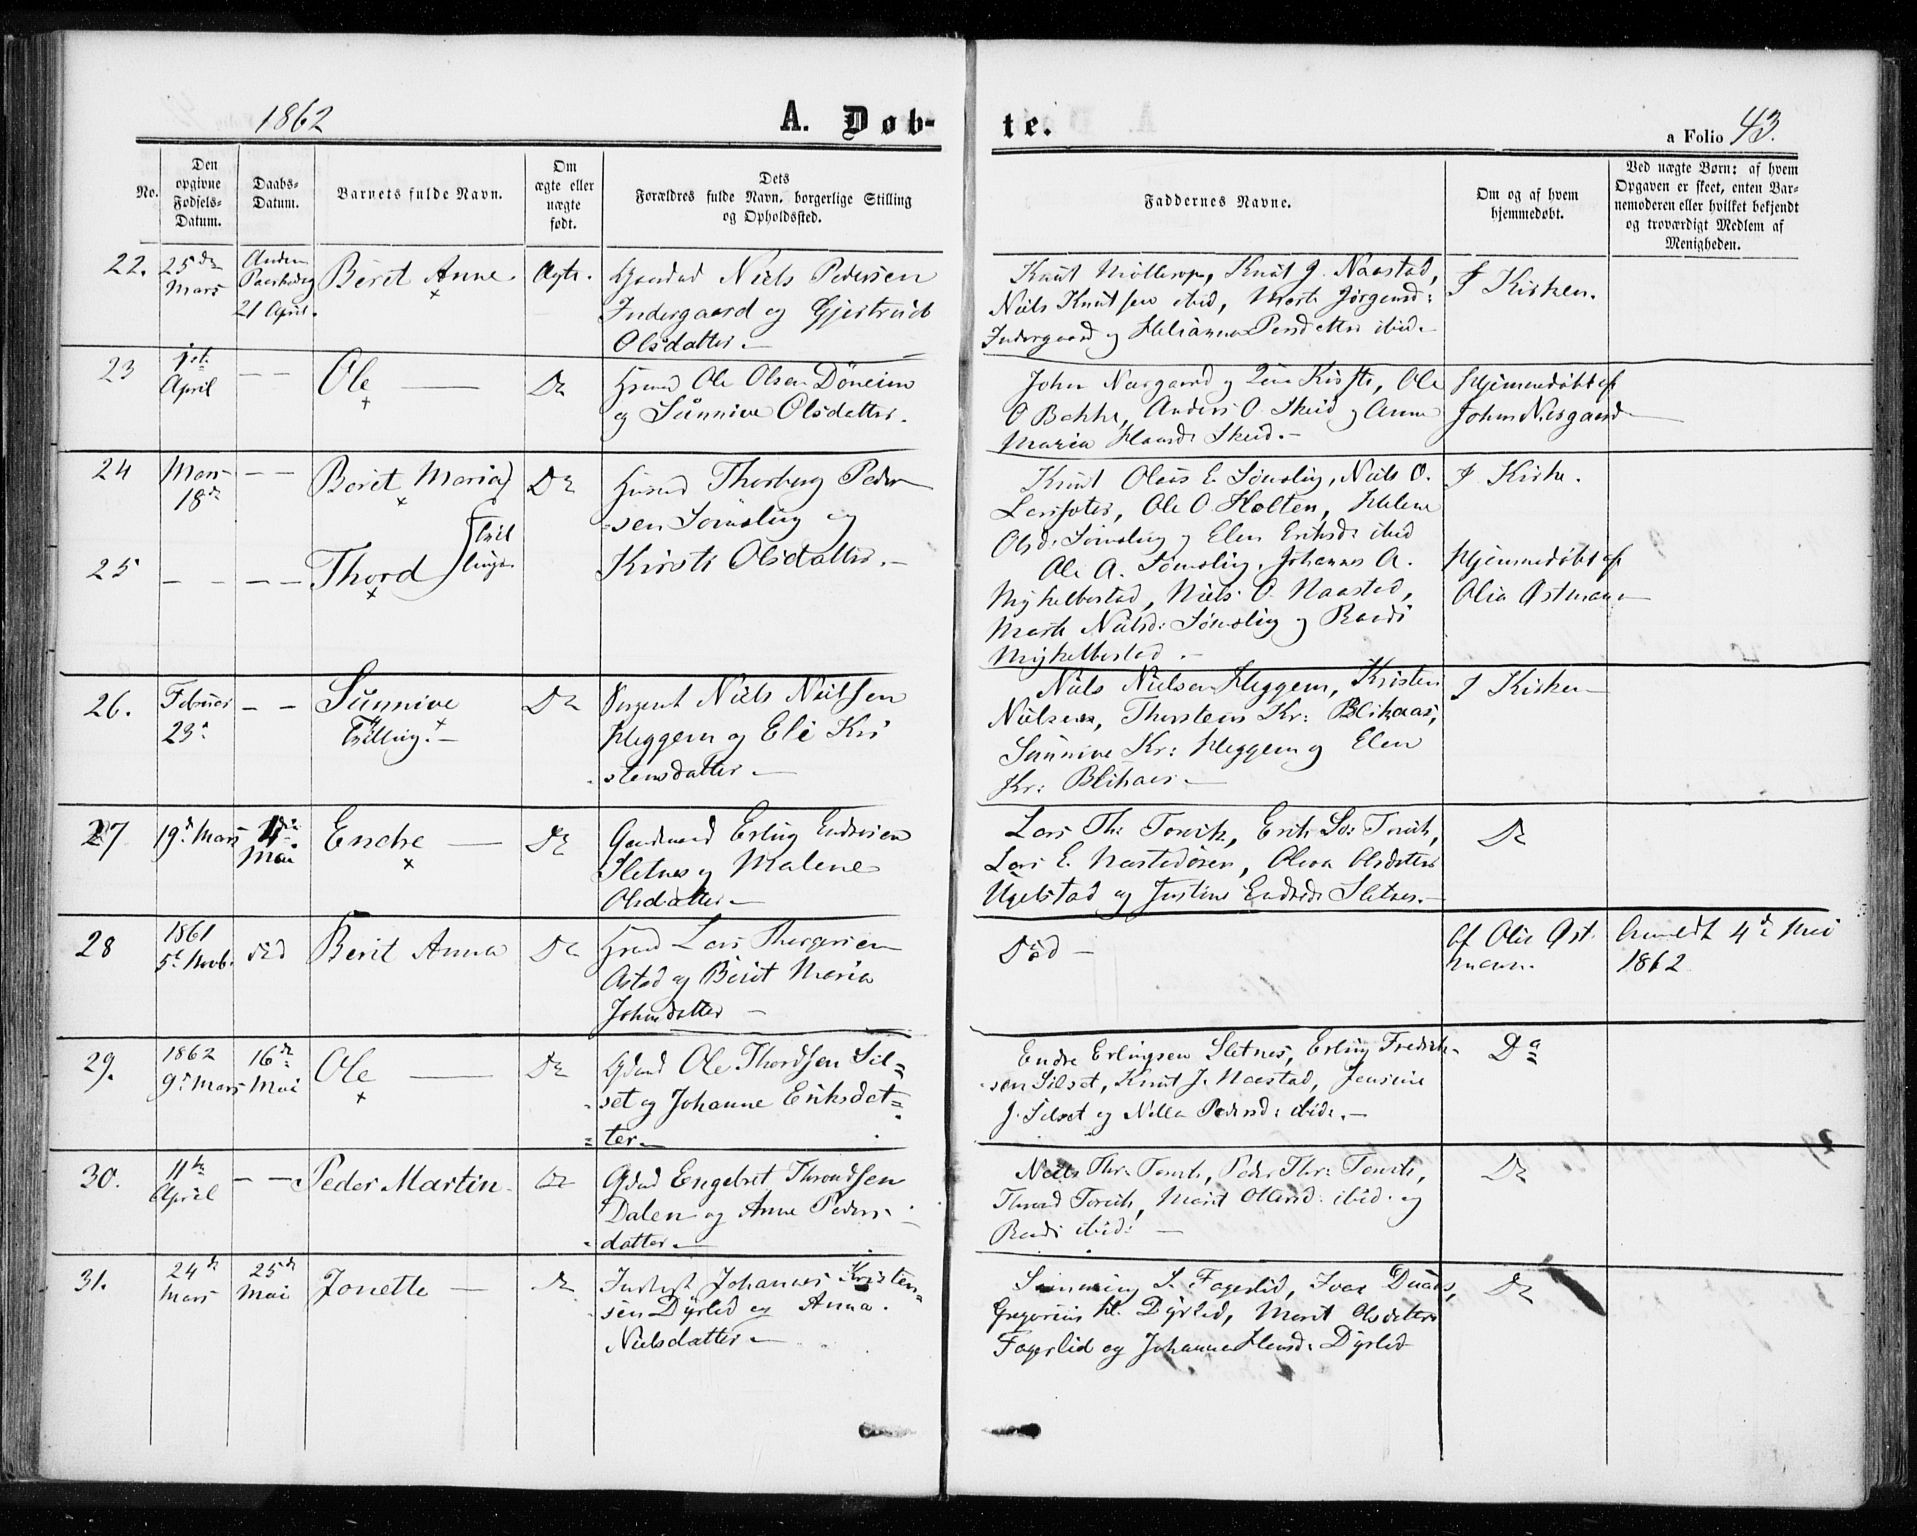 1862
A. Døb-
te.
a Folio 43.
No.
Den
opgivne
Fødsels-
Datum.
Daabs-
Datum.
Barnets fulde Navn.
Om
ægte eller
uægte
født.
Dets
Forældres fulde Navn, borgerlige Stilling
og Opholdssted.
Faddernes Navne.
Om og af hvem
hjemmedøbt.
Ved uægte Børn: af hvem
Opgaven er skeet, enten Bar-
nemoderen eller hvilket bekjendt
og troværdigt Medlem af
Menigheden.
22.
25de
Mars
Anden
Paaskedag
21 April.
Berit Anne
Ægte.
Niels Pedersen
Indergaard og Gjertrud
Olsdatter.
Knut Knut J. Naastad,
Niels Knutsen ibid, Marte Jørgensd:
Indergaard og ibid.
I Kirken.
23
1ste
April
— —
Ole
Do
Ole Olsen Døneim
og Sünnive Olsdatter.
John Næsgaard og Kirsti, Ole
O Bakke, Anders O. Skeid og Anne
Maria Hansd: Skeid.
Hjemmedøbt af
John Næsgaard
24
Mars
18de
— —
Berit Maria
Do
Husmd Thorberg Peder-
sen Sømslig og
Kirsti Olsdatter.
Knut Olaus E. Sømslig, Niels O.
Ole O Holten, Helene
Olsd: Sømslig og Elen Eriksd: ibid
I Kirke.
25
— —
— —
Thord
Tvil
linger.
Ole A. Sømslig, Johannes A.
Myhelbostad, Niels O. Naastad,
Marte Nielsd: Sømslig og Randi
Myhelbostad.
Hjemmedøbt af
Olia Østmann
26.
Februar
23de
— —
Sünnive
Tvilling.
Do
Sergent Niels Nielsen
Heggem og Eli Kri
stensdatter
Niels Nielsen Heggem, Kristen
Nielsen, Thorstein Kr: Blikaas,
Sünnive Kr: Heggem og Elen
Kr: Blikaas
I Kirken
27
19de Mars
4de
Mai
Endre
Do
Gaardmand Erling Endresen
Sletnes og Malene
Olsdatter
Lars Th: Torvik, Erik Torvik,
Lars E. Olava Olsdatter
Ugelstad og Justine Endresd: Sletnes.
Do
28
1861
5te Novb.
død
Berit Anna
Do
Lars
Astad og Berit Maria
Johnsdatter
Død
af Olia Øst-
mann.
Anmeldt 4de Mai
1862
29.
1862
9de Mars
16de
Mai
Ole
Do
Ole Thordsen Sil-
set og Johanne Eriksdat-
ter
Endre Erlingsen Sletnes, Erling Fredrik-
sen Silset, Knut J. Naastad, Jensine
J. Silset og Nella Pedersd: ibid.
Do
30.
11te
April
— —
Peder Martin
Do
Engebret Throndsen
Dalen og Anne Peders-
datter
Niels Thr: Torvik, Peder Thr: Torvik,
Thrond Torvik, Marit ibid: og
ibid:
Do
31.
24de
Mars
25de
Mai
Jonette
Do
Johannes Kristen-
sen Dyrlid og Anna
Nielsdatter
S. Fagerlid, Ivar
Gregorius Dyrlid, Marit Olsdatter
Fagerlid og Johanne Hansd: Dyrlid
Do